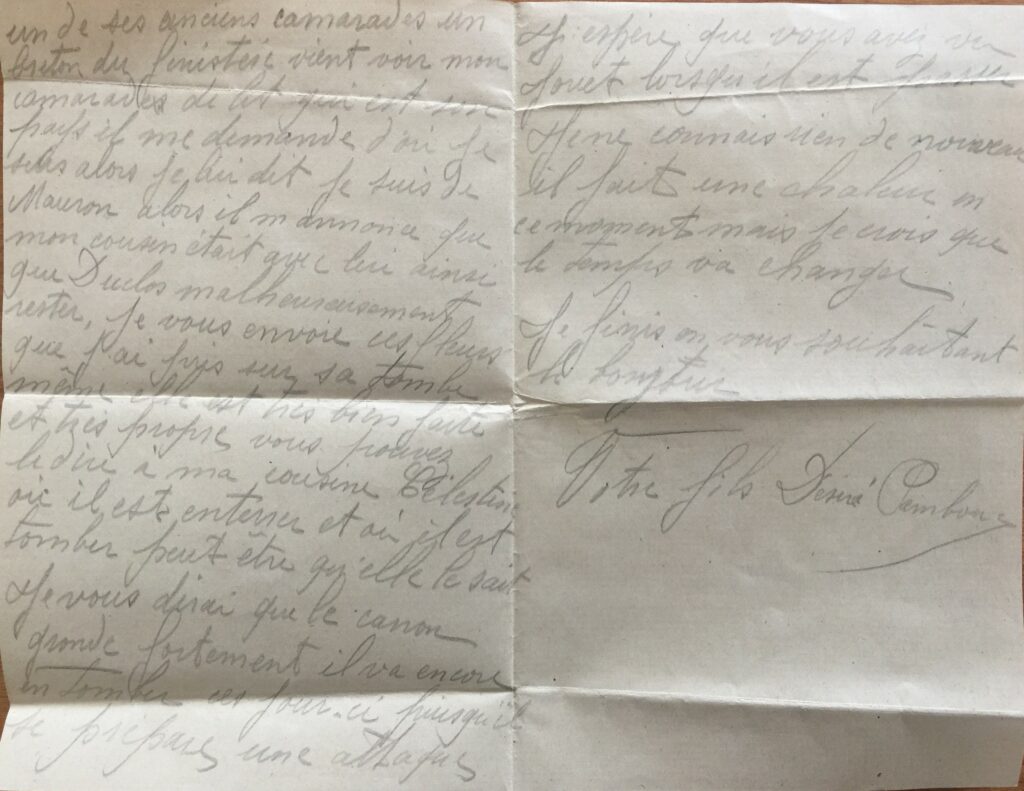 un de ses anciens camarades un
breton du finistère vient voir mon
camarades de lit qui est son
pays il me demande d'où je
suis alors je lui dit je suis de
Mauron alors il m'annonce que
mon cousin était avec lui ainsi
que Duclos malheureusement
rester, je vous envoie ces fleurs
que j'ai pris sur sa tombe
même elle est très bien faite
et très propre vous pouvez
le dire à ma cousine Célestine
où il est enterrer et où il est
tomber peut être qu'elle le sait
Je vous dirai que le canon
gronde fortement il va encore
en tomber ces jour-ci puisqu'il
se prépare une attaque
J'espère que vous avez vu
Jouet lorsqu'il est
Je ne connais rien de nouveau
il fait une chaleur en
ce moment mais je crois que
le temps va changer
Je finis en vous souhaitant
le bonjour
Votre fils Désiré